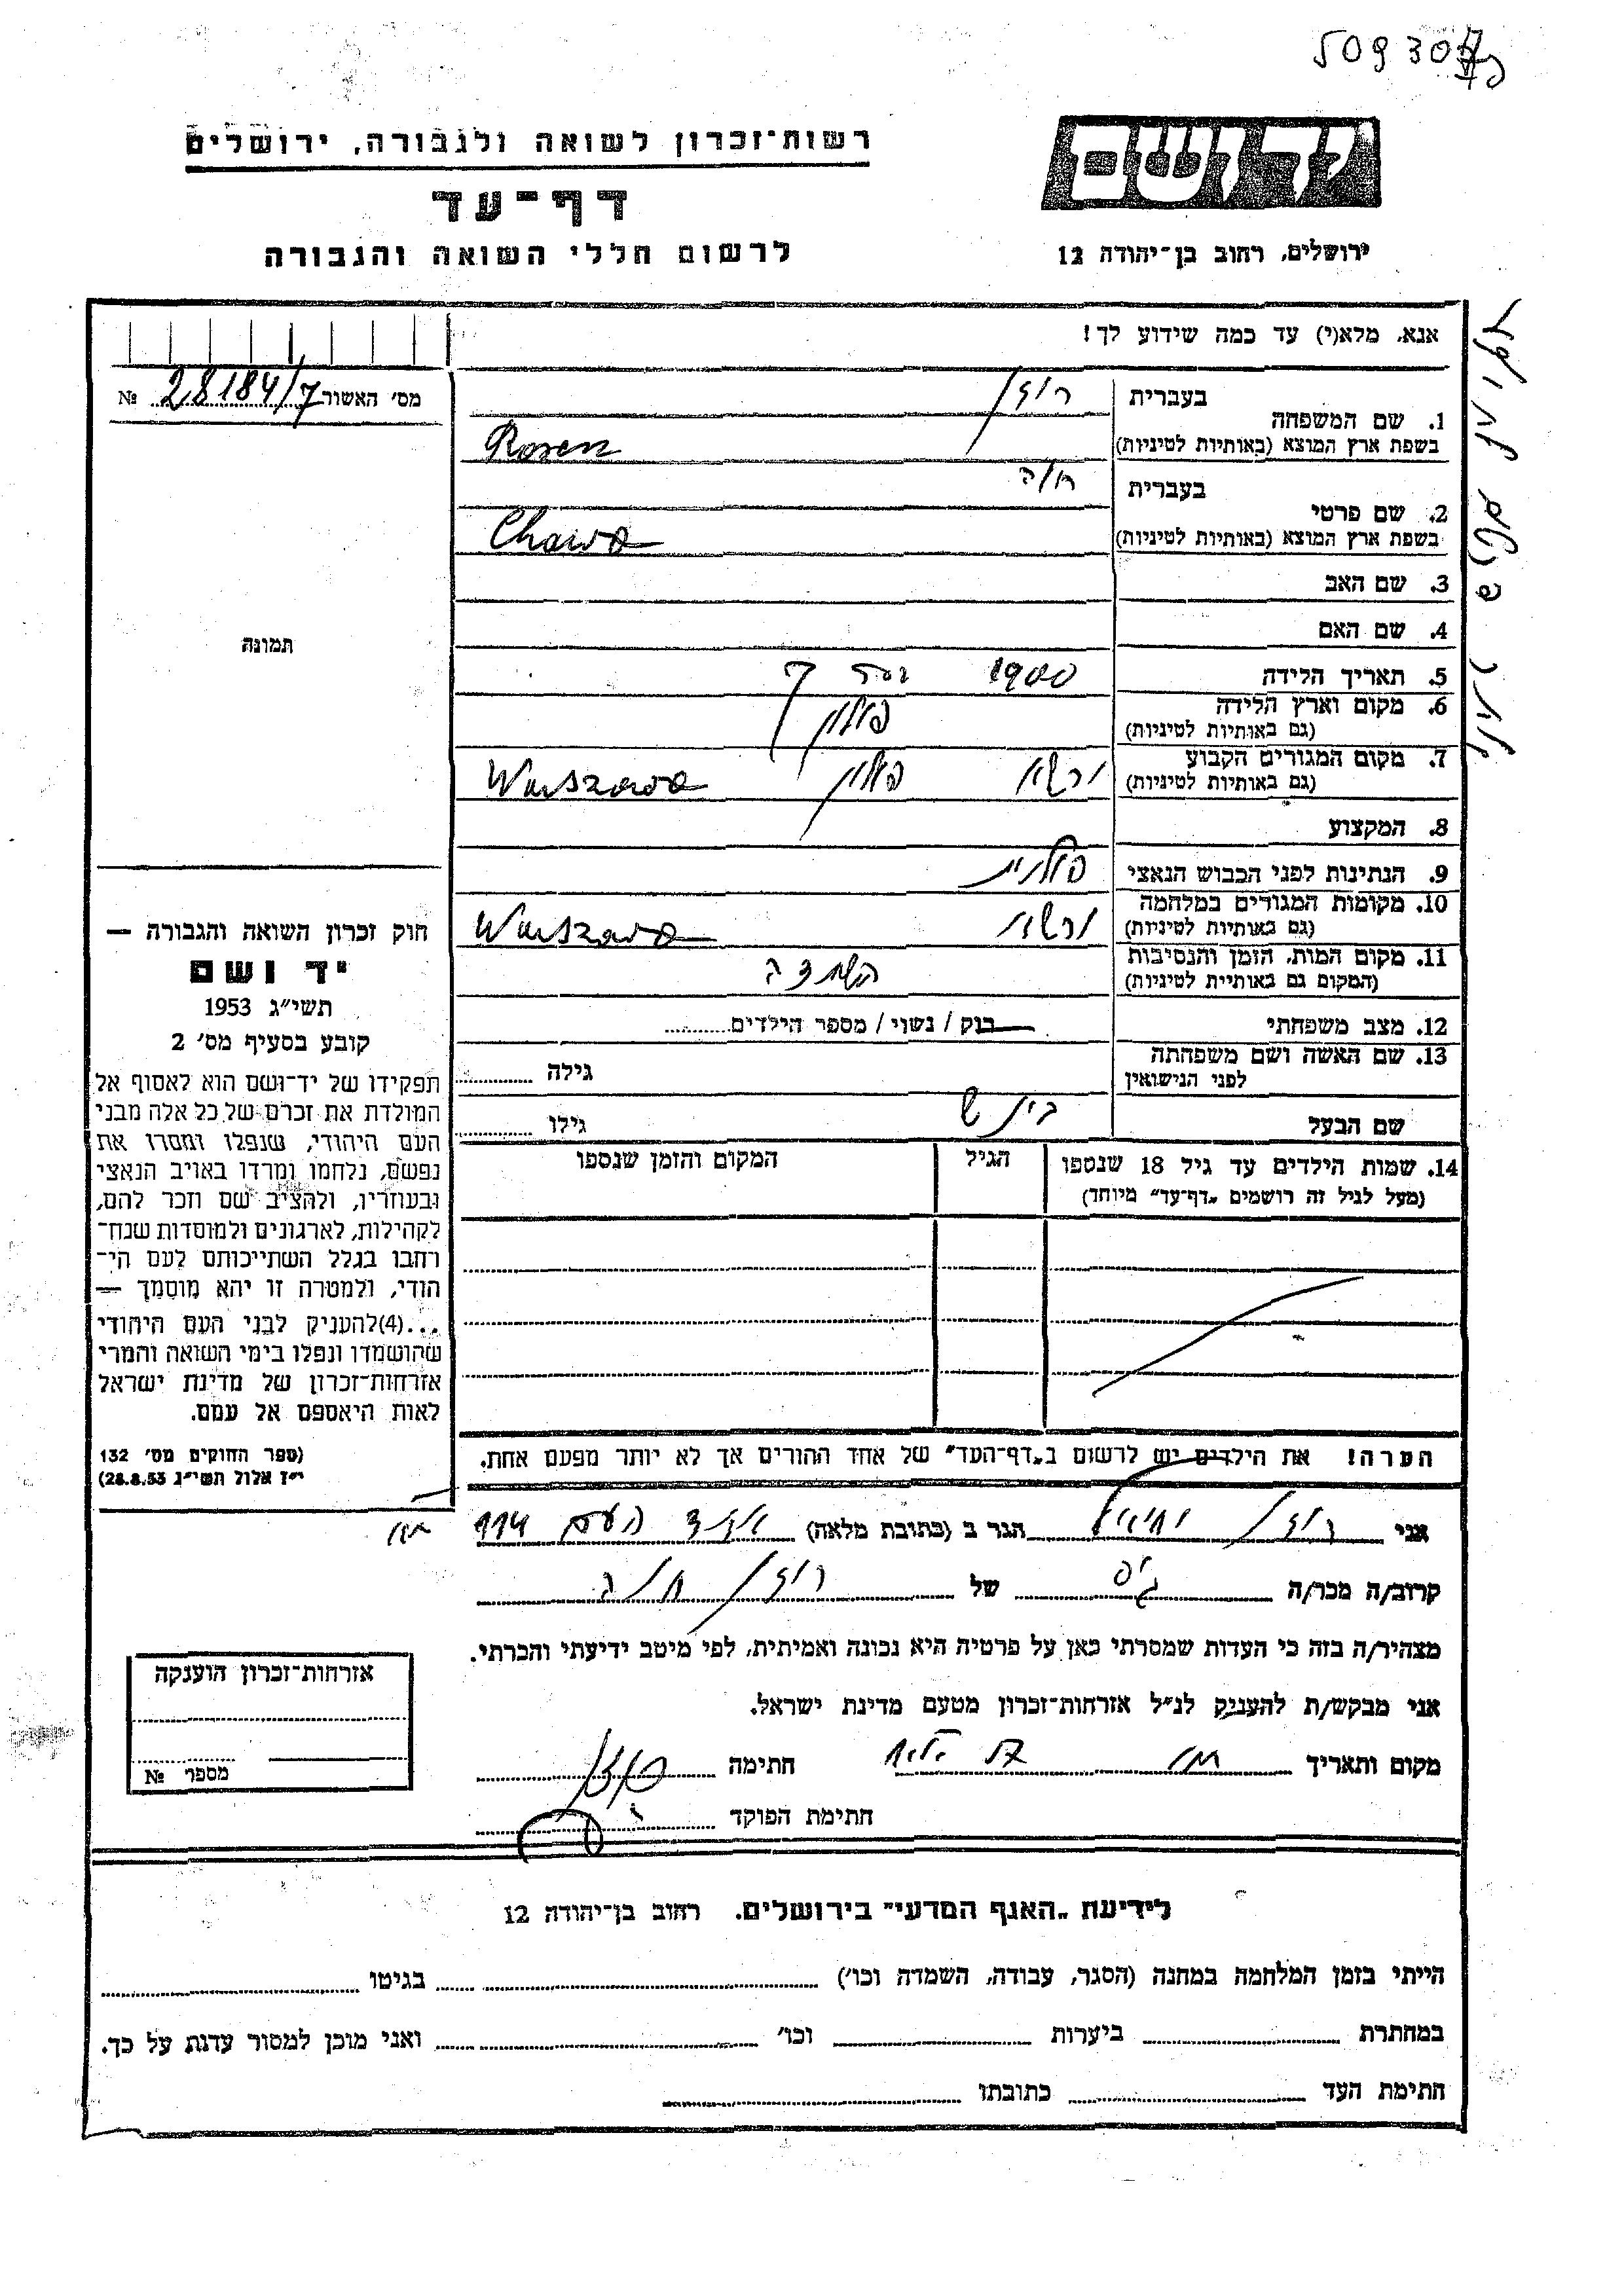 509307
רשות־זכרון לשואה ולגבורה, ירושלים
דף־עד
לרשום חללי השואה והגבורה
יד ושם
ירושלים, רחוב בן־יהודה 12
אנא, מלא(י) עד כמה שידוע לך!
מס׳ האשור 28184/7 №
1. שם המשפחה
בעברית רוזן
בשפת ארץ המוצא (באותיות לטיניות) Rosen
2. שם פרטי
בעברית חוה
בשפת ארץ המוצא (באותיות לטיניות) Chawa
3. שם האב
4. שם האם
5. תאריך הלידה 1900
6. מקום וארץ הלידה פולין
(גם באותיות לטיניות)
7. מקום המגורים הקבוע ורשא פולין Warszawa
(גם באותיות לטיניות)
8. המקצוע
9. הנתינות לפני הכבוש הנאצי פולנית
10. מקומות המגורים במלחמה ורשא Warszawa
(גם באותיות לטיניות)
11. מקום המות, הזמן והנסיבות
(המקום גם באותיית לטיניות)
12. מצב משפחתי רוק / נשוי / מספר הילדים
13. שם האשה ושם משפחתה
לפני הנישואין גילה
שם הבעל גילו
14. שמות הילדים עד גיל 18 שנספו הגיל המקום והזמן שנספו
(מעל לגיל זה רושמים „דף־עד” מיוחד)
הערה! את הילדים יש לרשום ב„דף־העד” של אחד ההורים אך לא יותר מפעם אחת.
תמונה
חוק זכרון השואה והגבורה —
יד ושם
תשי״ג 1953
קובע בסעיף מס׳ 2
תפקידו של יד־ושם הוא לאסוף אל
המולדת את זכרם של כל אלה מבני
העם היהודי, שנפלו ומסרו את
נפשם, נלחמו ומרדו באויב הנאצי
ובעוזריו, ולהציב שם וזכר להם,
לקהילות, לארגונים ולמוסדות שנח־
רחבו בגלל השתייכותם לעם הי־
הודי, ולמטרה זו יהא מוסמך —
...(4)להעניק לבני העם היהודי
שהושמדו ונפלו בימי השואה והמרי
אזרחות־זכרון של מדינת ישראל
לאות היאספם אל עמם.
(ספר החוקים מס׳ 132
י״ז אלול תשי״ג 28.8.53)
אני רוזן הגר ב (כתובת מלאה) אחד העם 114
קרוב/ה מכר/ה גיס של רוזן חוה
מצהיר/ה בזה כי העדות שמסרתי כאן על פרטיה היא נכונה ואמיתית, לפי מיטב ידיעתי והכרתי.
אני מבקש/ת להעניק לנ״ל אזרחות־זכרון מטעם מדינת ישראל.
מקום ותאריך חתימה
חתימת הפוקד
אזרחות־זכרון הוענקה
מספר №
לידיעת „האגף המדעי” בירושלים, רחוב בן־יהודה 12
הייתי בזמן המלחמה במחנה (הסגר, עבודה, השמדה וכו׳) בגיטו
במחתרת ביערות וכו׳ ואני מוכן למסור עדות על כך.
חתימת העד כתובתו